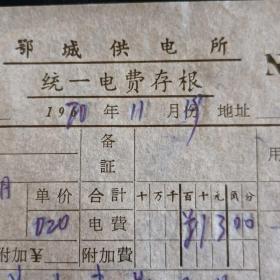 鄂城供电所
统一电费存根
1970年11月 地址
备証 用
月 单价 合計 十万千百十元角分
020 电費 ¥1300
附加¥ 附加費